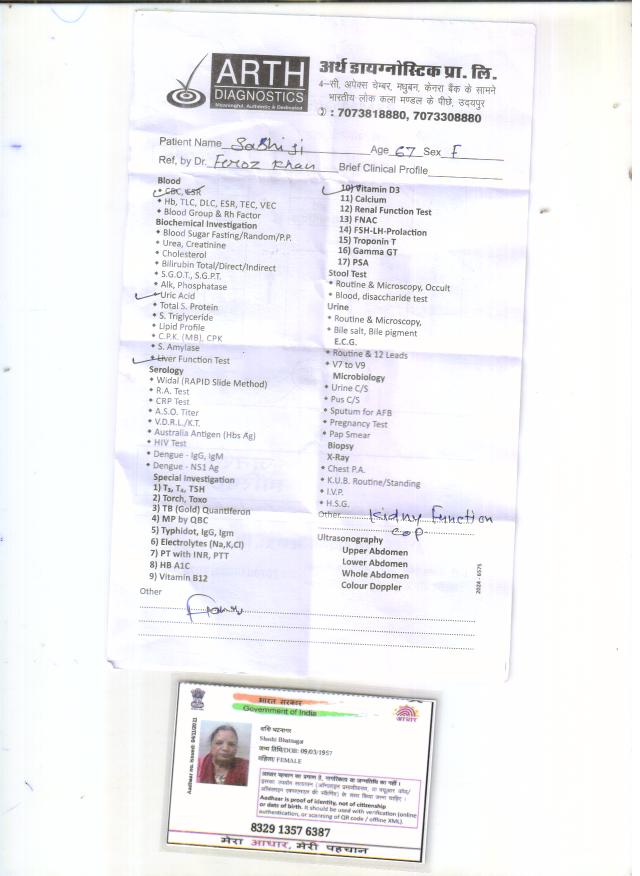 ARTH
DIAGNOSTICS
Meaningful, Authentic & Dedicated
अर्थ डायग्नोस्टिक प्रा. लि.
4-सी, अपेक्स चेम्बर, मधुबन, केनरा बैंक के सामने
भारतीय लोक कला मण्डल के पीछे, उदयपुर
: 7073818880, 7073308880
Patient Name Sashi ji Age 67 Sex F
Ref, by Dr. Feroz Khan Brief Clinical Profile
Blood
CBC, ESR
Hb, TLC, DLC, ESR, TEC, VEC
Blood Group & Rh Factor
Biochemical Investigation
Blood Sugar Fasting/Random/P.P.
Urea, Creatinine
Cholesterol
Bilirubin Total/Direct/Indirect
S.G.O.T., S.G.P.T.
Alk, Phosphatase
Uric Acid
Total S. Protein
S. Triglyceride
Lipid Profile
C.P.K. (MB), CPK
S. Amylase
Liver Function Test
Serology
Widal (RAPID Slide Method)
R.A. Test
CRP Test
A.S.O. Titer
V.D.R.L./K.T.
Australia Antigen (Hbs Ag)
HIV Test
Dengue - IgG, IgM
Dengue - NS1 Ag
Special Investigation
1) T₃, T₄, TSH
2) Torch, Toxo
3) TB (Gold) Quantiferon
4) MP by QBC
5) Typhidot, IgG, Igm
6) Electrolytes (Na,K,Cl)
7) PT with INR, PTT
8) HB A1C
9) Vitamin B12
10) Vitamin D3
11) Calcium
12) Renal Function Test
13) FNAC
14) FSH-LH-Prolaction
15) Troponin T
16) Gamma GT
17) PSA
Stool Test
Routine & Microscopy, Occult
Blood, disaccharide test
Urine
Routine & Microscopy,
Bile salt, Bile pigment
E.C.G.
Routine & 12 Leads
V7 to V9
Microbiology
Urine C/S
Pus C/S
Sputum for AFB
Pregnancy Test
Pap Smear
Biopsy
X-Ray
Chest P.A.
K.U.B. Routine/Standing
I.V.P.
H.S.G.
Other Kidny Function
Ultrasonography
Upper Abdomen
Lower Abdomen
Whole Abdomen
Colour Doppler
2024 - 6575
Other
भारत सरकार
Government of India
आधार
Aadhaar no. issued: 04/11/2011
शशि भटनागर
Shashi Bhatnagar
जन्म तिथि/DOB: 09/03/1957
महिला/ FEMALE
आधार पहचान का प्रमाण है, नागरिकता या जन्मतिथि का नहीं।
इसका उपयोग सत्यापन (ऑनलाइन प्रमाणीकरण, या क्यूआर कोड/
ऑफ़लाइन एक्सएमएल की स्कैनिंग) के साथ किया जाना चाहिए।
Aadhaar is proof of identity, not of citizenship
or date of birth. It should be used with verification (online
authentication, or scanning of QR code / offline XML).
8329 1357 6387
मेरा आधार, मेरी पहचान